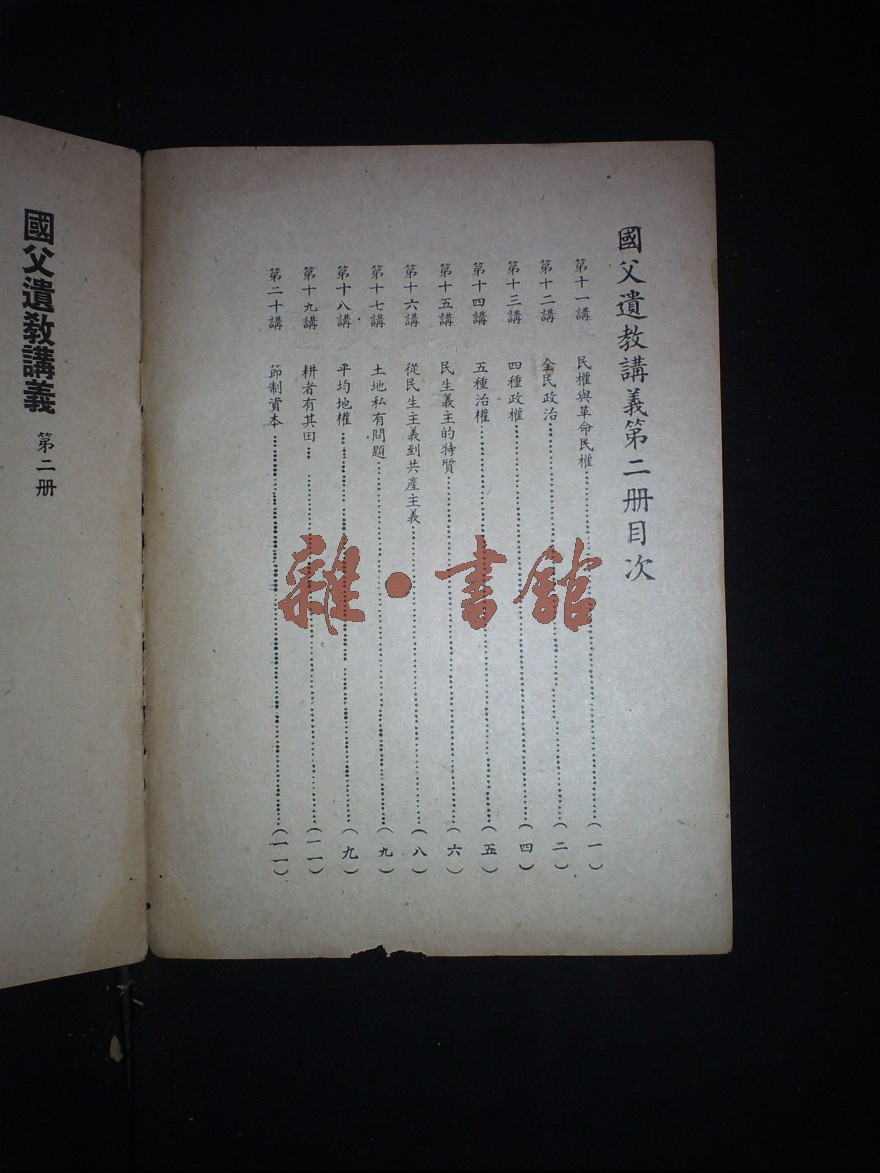 國父遺教講義第二册目次
第十一講 民權與革命民權……(一)
第十二講 全民政治……(二)
第十三講 四種政權……(四)
第十四講 五種治權……(五)
第十五講 民生義主的特質……(六)
第十六講 從民生主義到共產主義……(八)
第十七講 土地私有問題……(九)
第十八講 平均地權……(九)
第十九講 耕者有其田……(一一)
第二十講 節制資本……(一一)
國父遺教講義 第二册
雜·書館